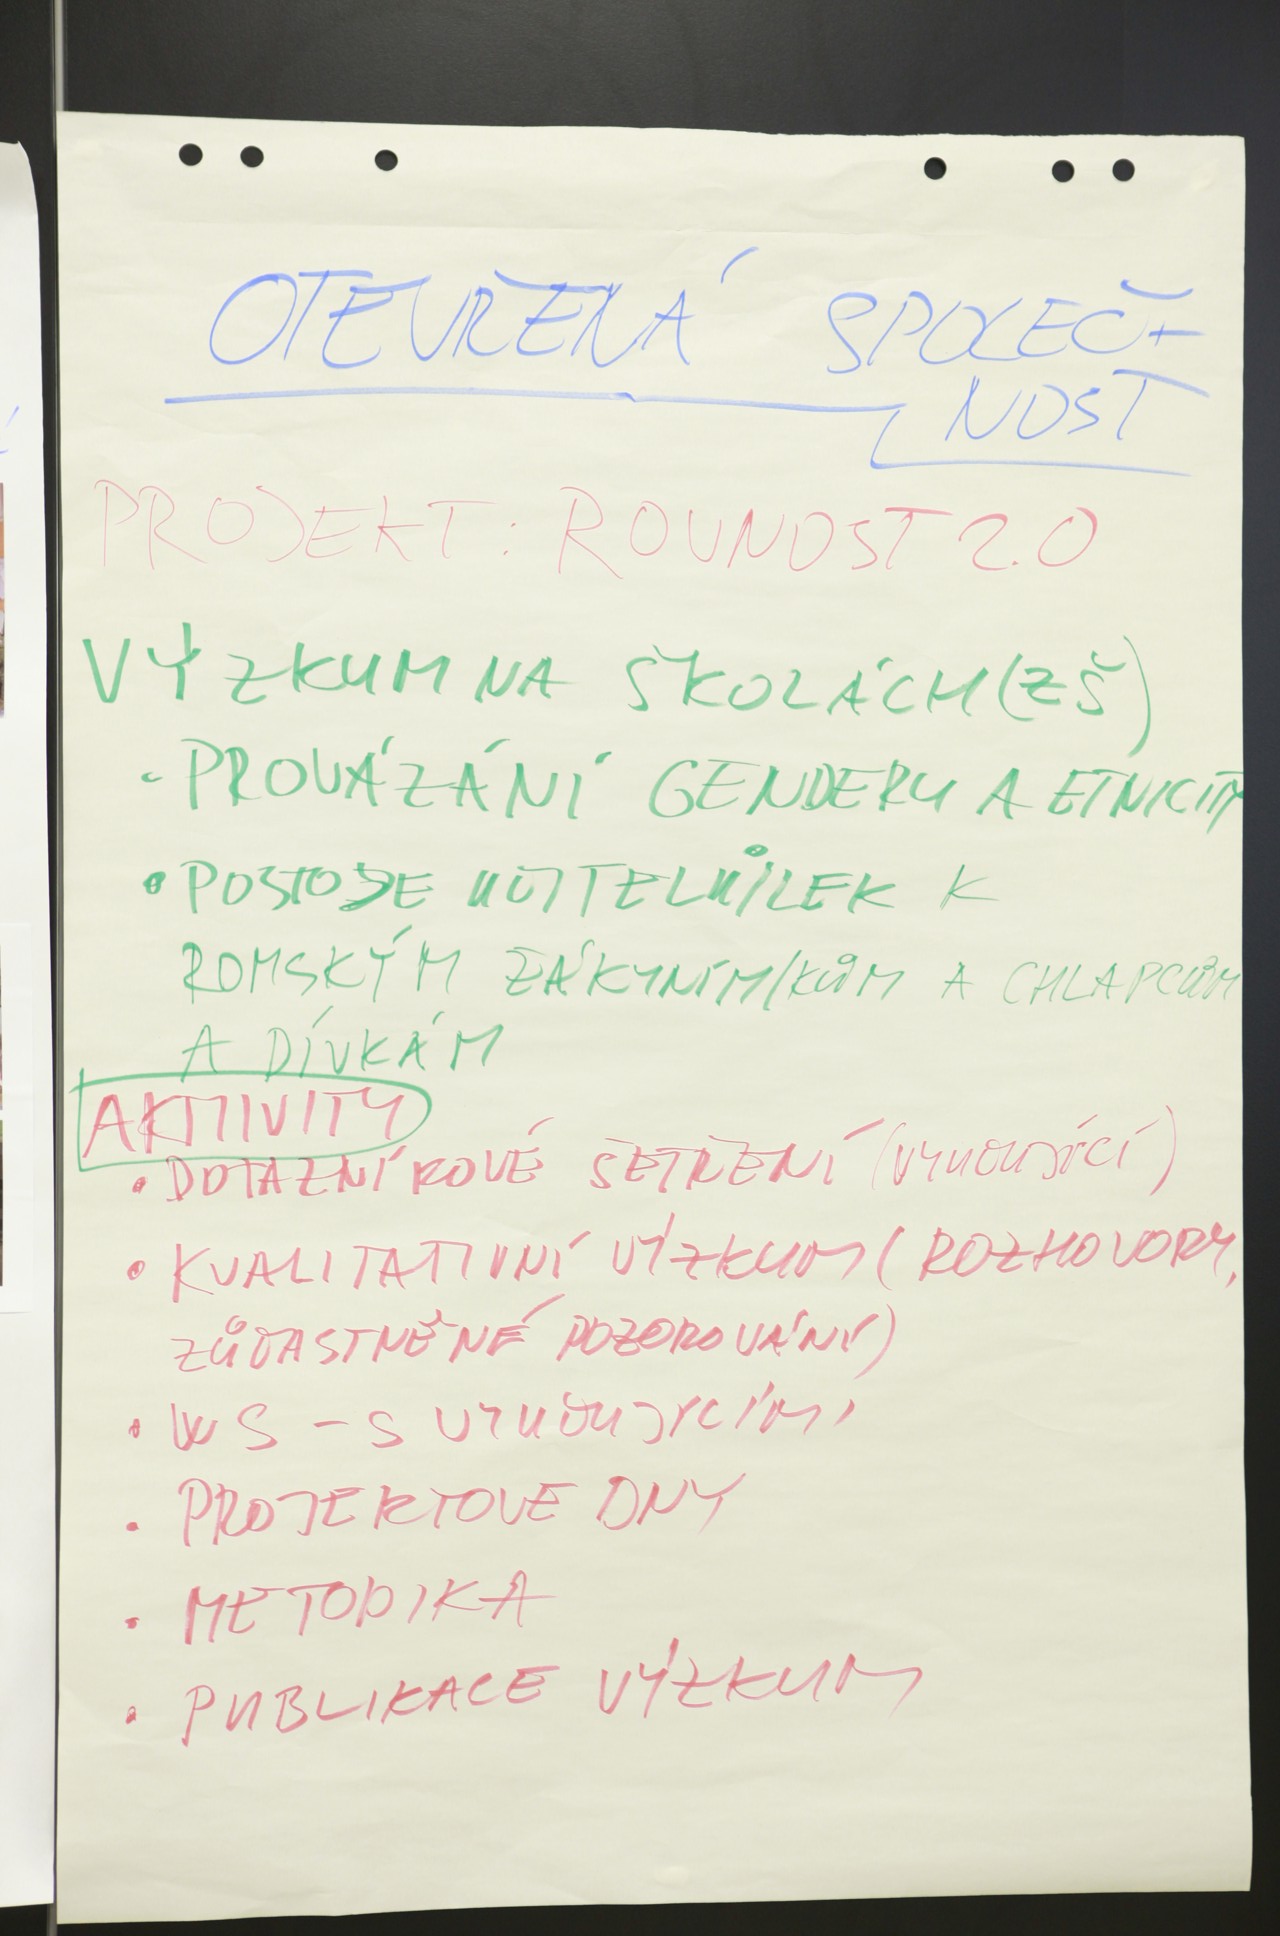 OTEVŘENÁ SPOLEČ-
NOST
PROJEKT: ROVNOST 2.0
VÝZKUM NA ŠKOLÁCH (ZŠ)
- PROVÁZÁNÍ GENDERU A ETNICITY
• POSTOJE UČITELŮ/LEK K
ROMSKÝM ŽÁKYNÍM/KŮM A CHLAPCŮM
A DÍVKÁM
AKTIVITY
• DOTAZNÍKOVÉ ŠETŘENÍ (VYUČUJÍCÍ)
• KVALITATIVNÍ VÝZKUM (ROZHOVORY,
ZÚČASTNĚNÉ POZOROVÁNÍ)
• WS - S VYUČUJÍCÍMI
• PROJEKTOVÉ DNY
• METODIKA
• PUBLIKACE VÝZKUM